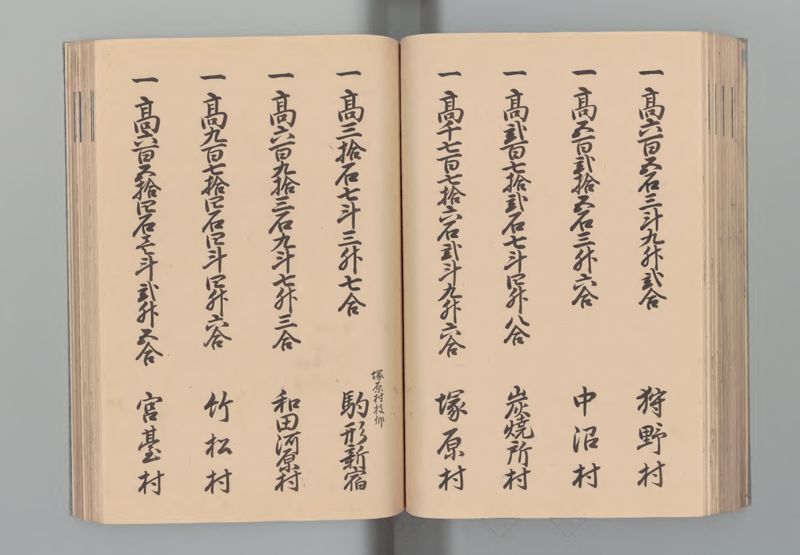 一高六百五石三斗九升弐合 狩野村
一高五百弐拾五石三升六合 中沼村
一高弐百七拾弐石七斗四升八合 炭焼所村
一高千七百七拾六石弐斗九升六合 塚原村
塚原村枝郷
一高三拾石七斗三升七合 駒形新宿
一高六百九拾三石九斗七升三合 和田河原村
一高九百七拾四石四斗四升六合 竹松村
一高六百五拾四石壱斗弐升五合 宮䑓村